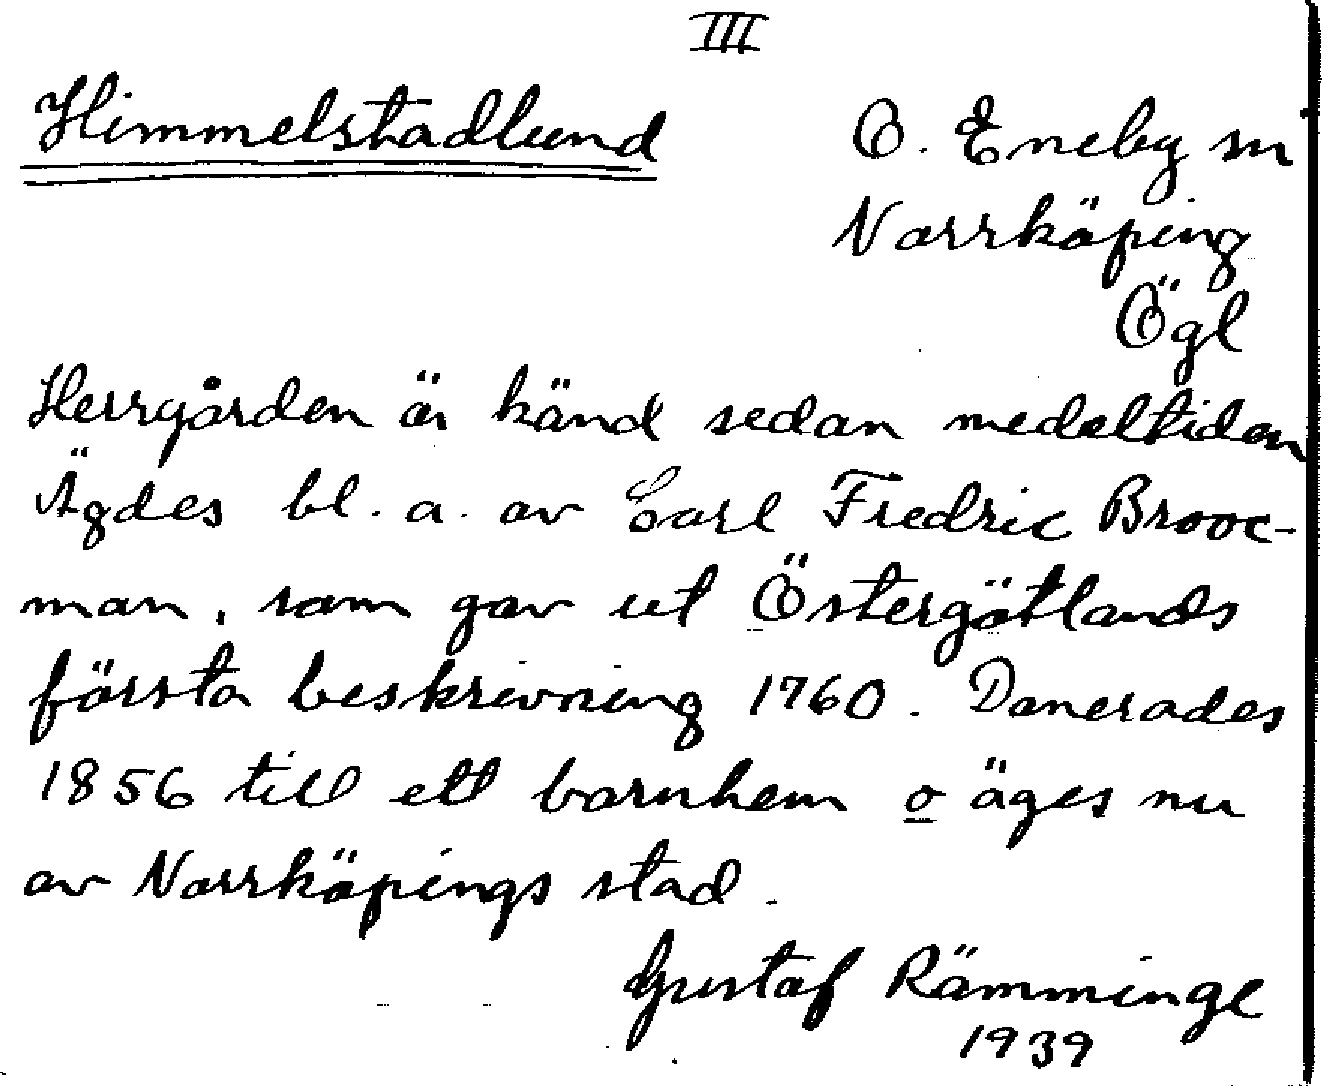 III
Himmelstadlund
Ö. Eneby sn
Norrköping
Ögl
Herrgården är känd sedan medeltiden
Ägdes bl. a. av Carl Fredric Brooc-
man, som gav ut Östergötlands
första beskrivning 1760. Donerades
1856 till ett barnhem o äges nu
av Norrköpings stad.
Gustaf Rämminge
1939